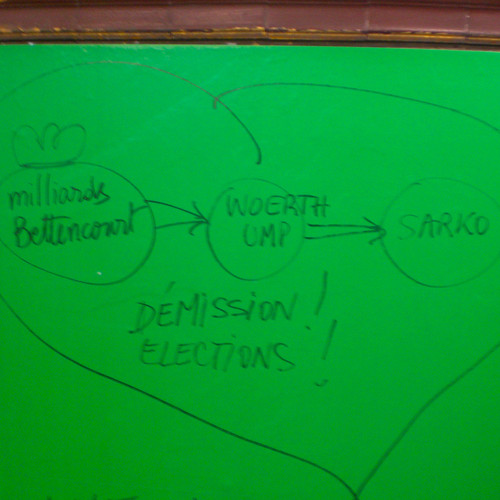 milliards
Bettencourt
WOERTH
UMP
SARKO
DÉMISSION !
ELECTIONS !